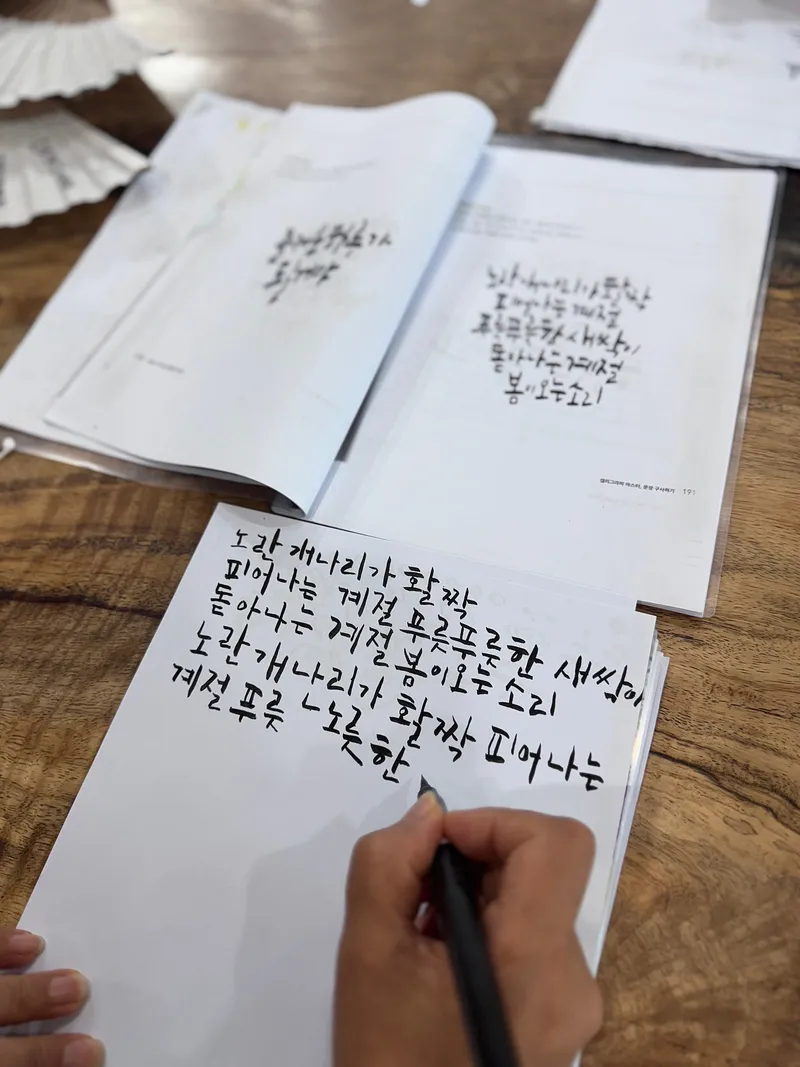 노란 개나리가 활짝
피어나는 계절
푸릇푸릇한 새싹이
돋아나는 계절
봄이 오는 소리
캘리그라피 마스터, 문장 구사하기 191
노란 개나리가 활짝
피어나는 계절 푸릇푸릇한 새싹이
돋아나는 계절 봄이오는 소리
노란 개나리가 활짝 피어나는
계절 푸릇 ㄴ노릇한